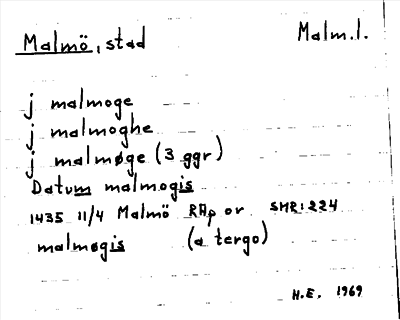 Malmö, stad Malm.l.
j malmoge
j malmoghe
j malmøge (3 ggr)
Datum malmogis
1435 11/4 Malmö RAp or SMR: 224
malmøgis (a tergo)
H.E. 1969